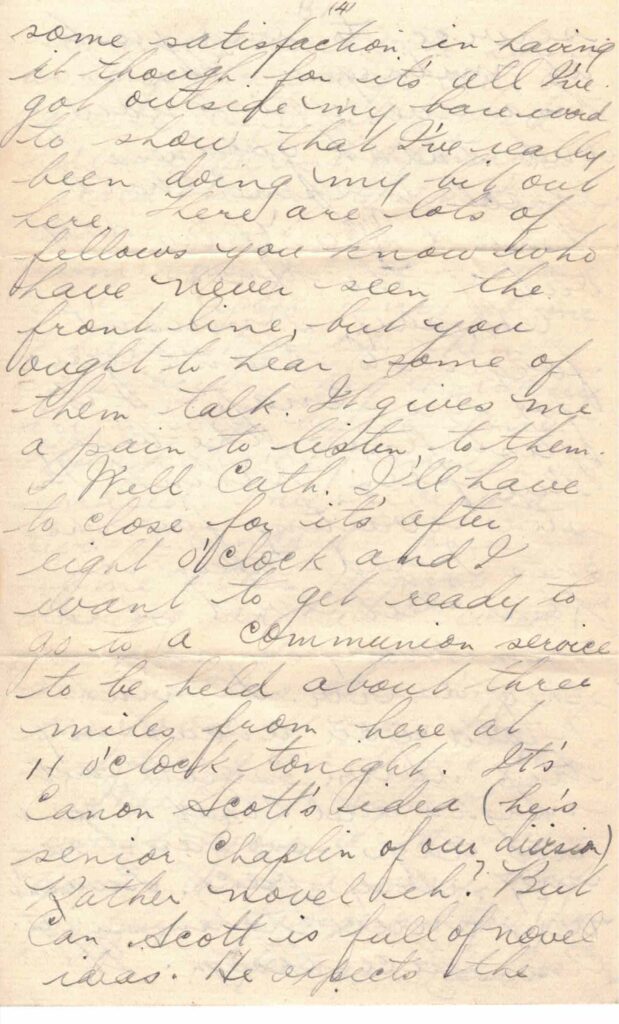 (4)
some satisfaction in having
it though for it's all I've
got outside my bare word
to show that I've really
been doing my bit out
here. There are lots of
fellows you know who
have never seen the
front line, but you
ought to hear some of
them talk. It gives me
a pain to listen to them.
Well Cath. I'll have
to close for it's after
eight o'clock and I
want to get ready to
go to a communion service
to be held about three
miles from here at
11 o'clock tonight. It's
Canon Scott's idea (he's
senior Chaplin of our division)
Rather novel eh? But
Can. Scott is full of novel
ideas. He expects the